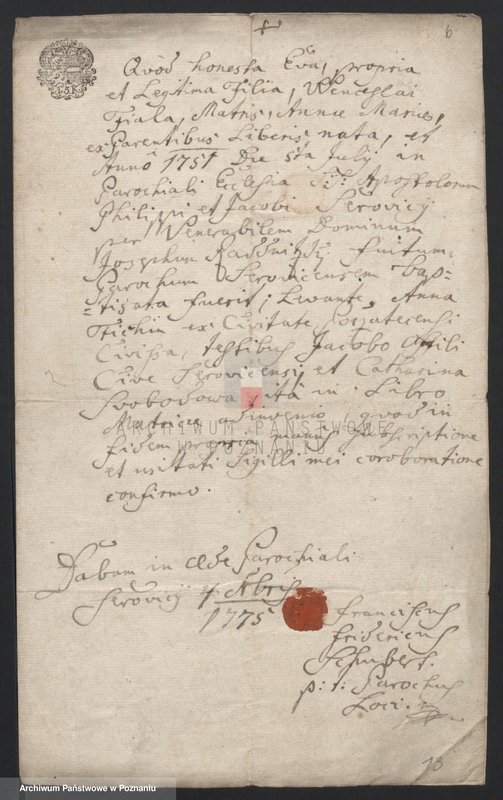 6
Quòd honesta Eva, propria
et Legitima Filia, Wenceslai
Fiala, Matris, Annæ Mariæ,
ex Parentibus Liberis nata, et
Anno 1751 Die 8ta July in
Parochiali Ecclesia SS: Apostolorum
Philippi et Jacobi Serovicij
per Venerabilem Dominum
Josephum fuitum
Parochum Serovicensem bap-
-tisata fuerit; Levante, Anna
ex Civitate
Civissa, testibus Jacobo
Cive Serovicensi et Catharina
Svobodowa, ità in Libro
Matricæ invenio, quod in
fidem propria manus subscriptione
et usitati Sigilli mei coroboratione
confirmo.
Dabam in Æde Parochiali
Serovicij 4 Xbris
1775
Franciscus
Fridericus
Schubert.
p: t: Parochus
Loci
10
ARCHIWUM PAŃSTWOWE
W POZNANIU
Archiwum Państwowe w Poznaniu